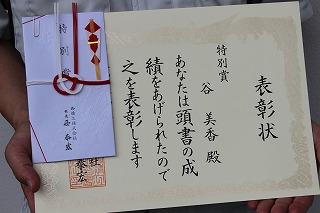 表彰状
特別賞
谷 美香 殿
あなたは頭書の成
績をあげられたので
之を表彰します
特別賞